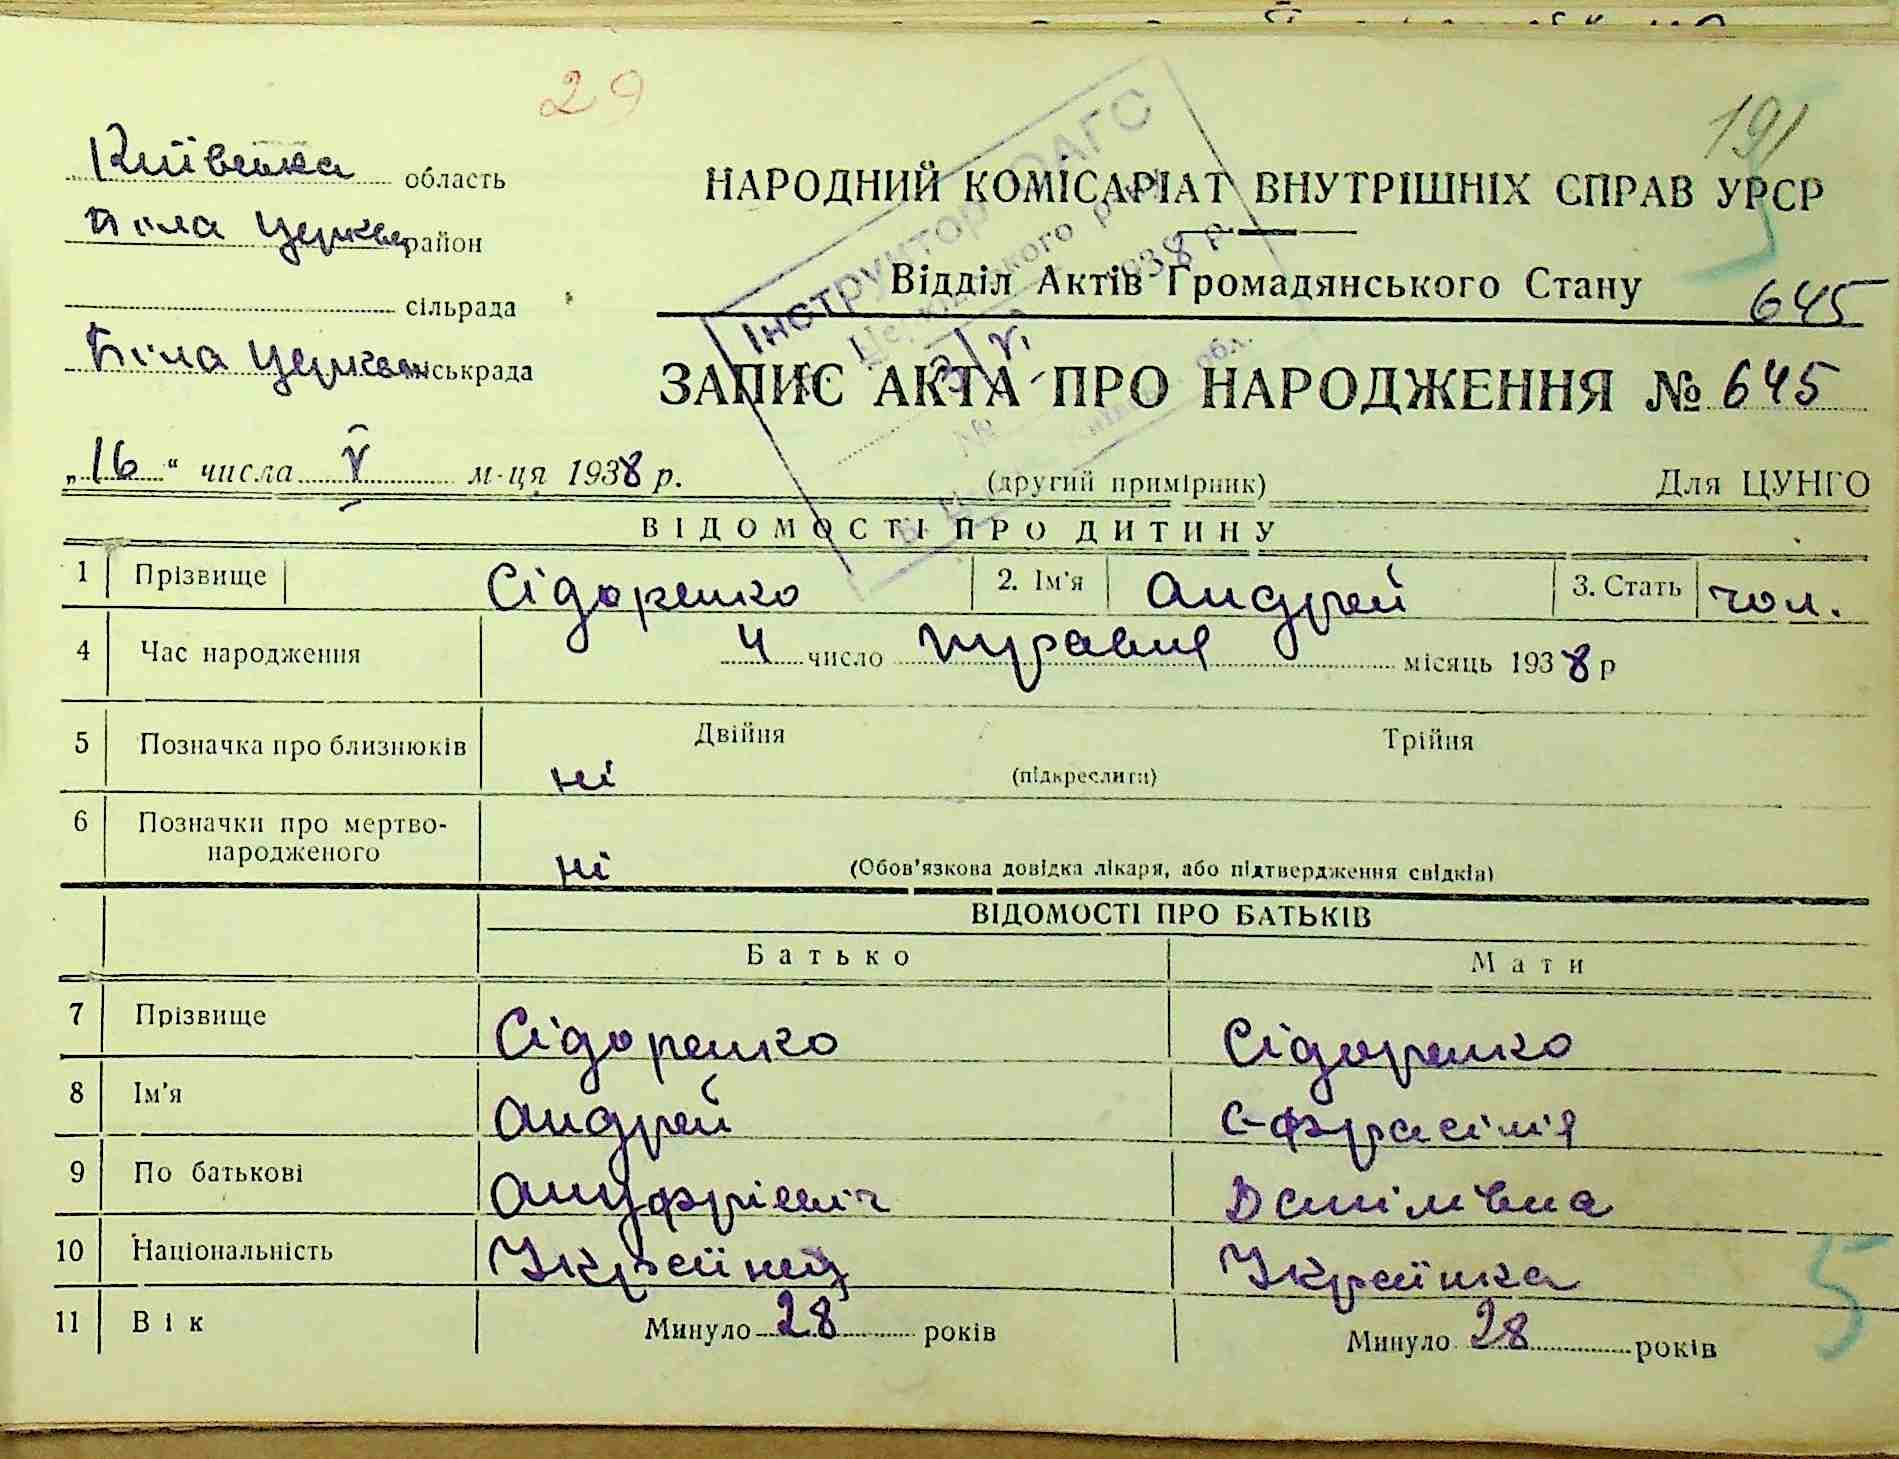 29
191
Київська область
Біла Церква район
сільрада
Біла Церква міськрада
НАРОДНИЙ КОМІСАРІАТ ВНУТРІШНІХ СПРАВ УРСР
Відділ Актів Громадянського Стану
645
ЗАПИС АКТА ПРО НАРОДЖЕННЯ № 645
„16“ числа V м-ця 1938 р.
(другий примірник)
Для ЦУНГО
Інструктор ОАГС
1938 р.
ВІДОМОСТІ ПРО ДИТИНУ
1 Прізвище Сідоренко 2. Ім'я Андрей 3. Стать чол.
4 Час народження 4 число травня місяць 1938 р
5 Позначка про близнюків ні Двійня Трійня
(підкреслити)
6 Позначки про мертво-
народженого ні (Обов'язкова довідка лікаря, або підтвердження свідків)
ВІДОМОСТІ ПРО БАТЬКІВ
Батько Мати
7 Прізвище Сідоренко Сідоренко
8 Ім'я Андрей Єфрасінія
9 По батькові Ануфрієвіч Данілівна
10 Національність Українец Українка
11 Вік Минуло 28 років Минуло 28 років
5